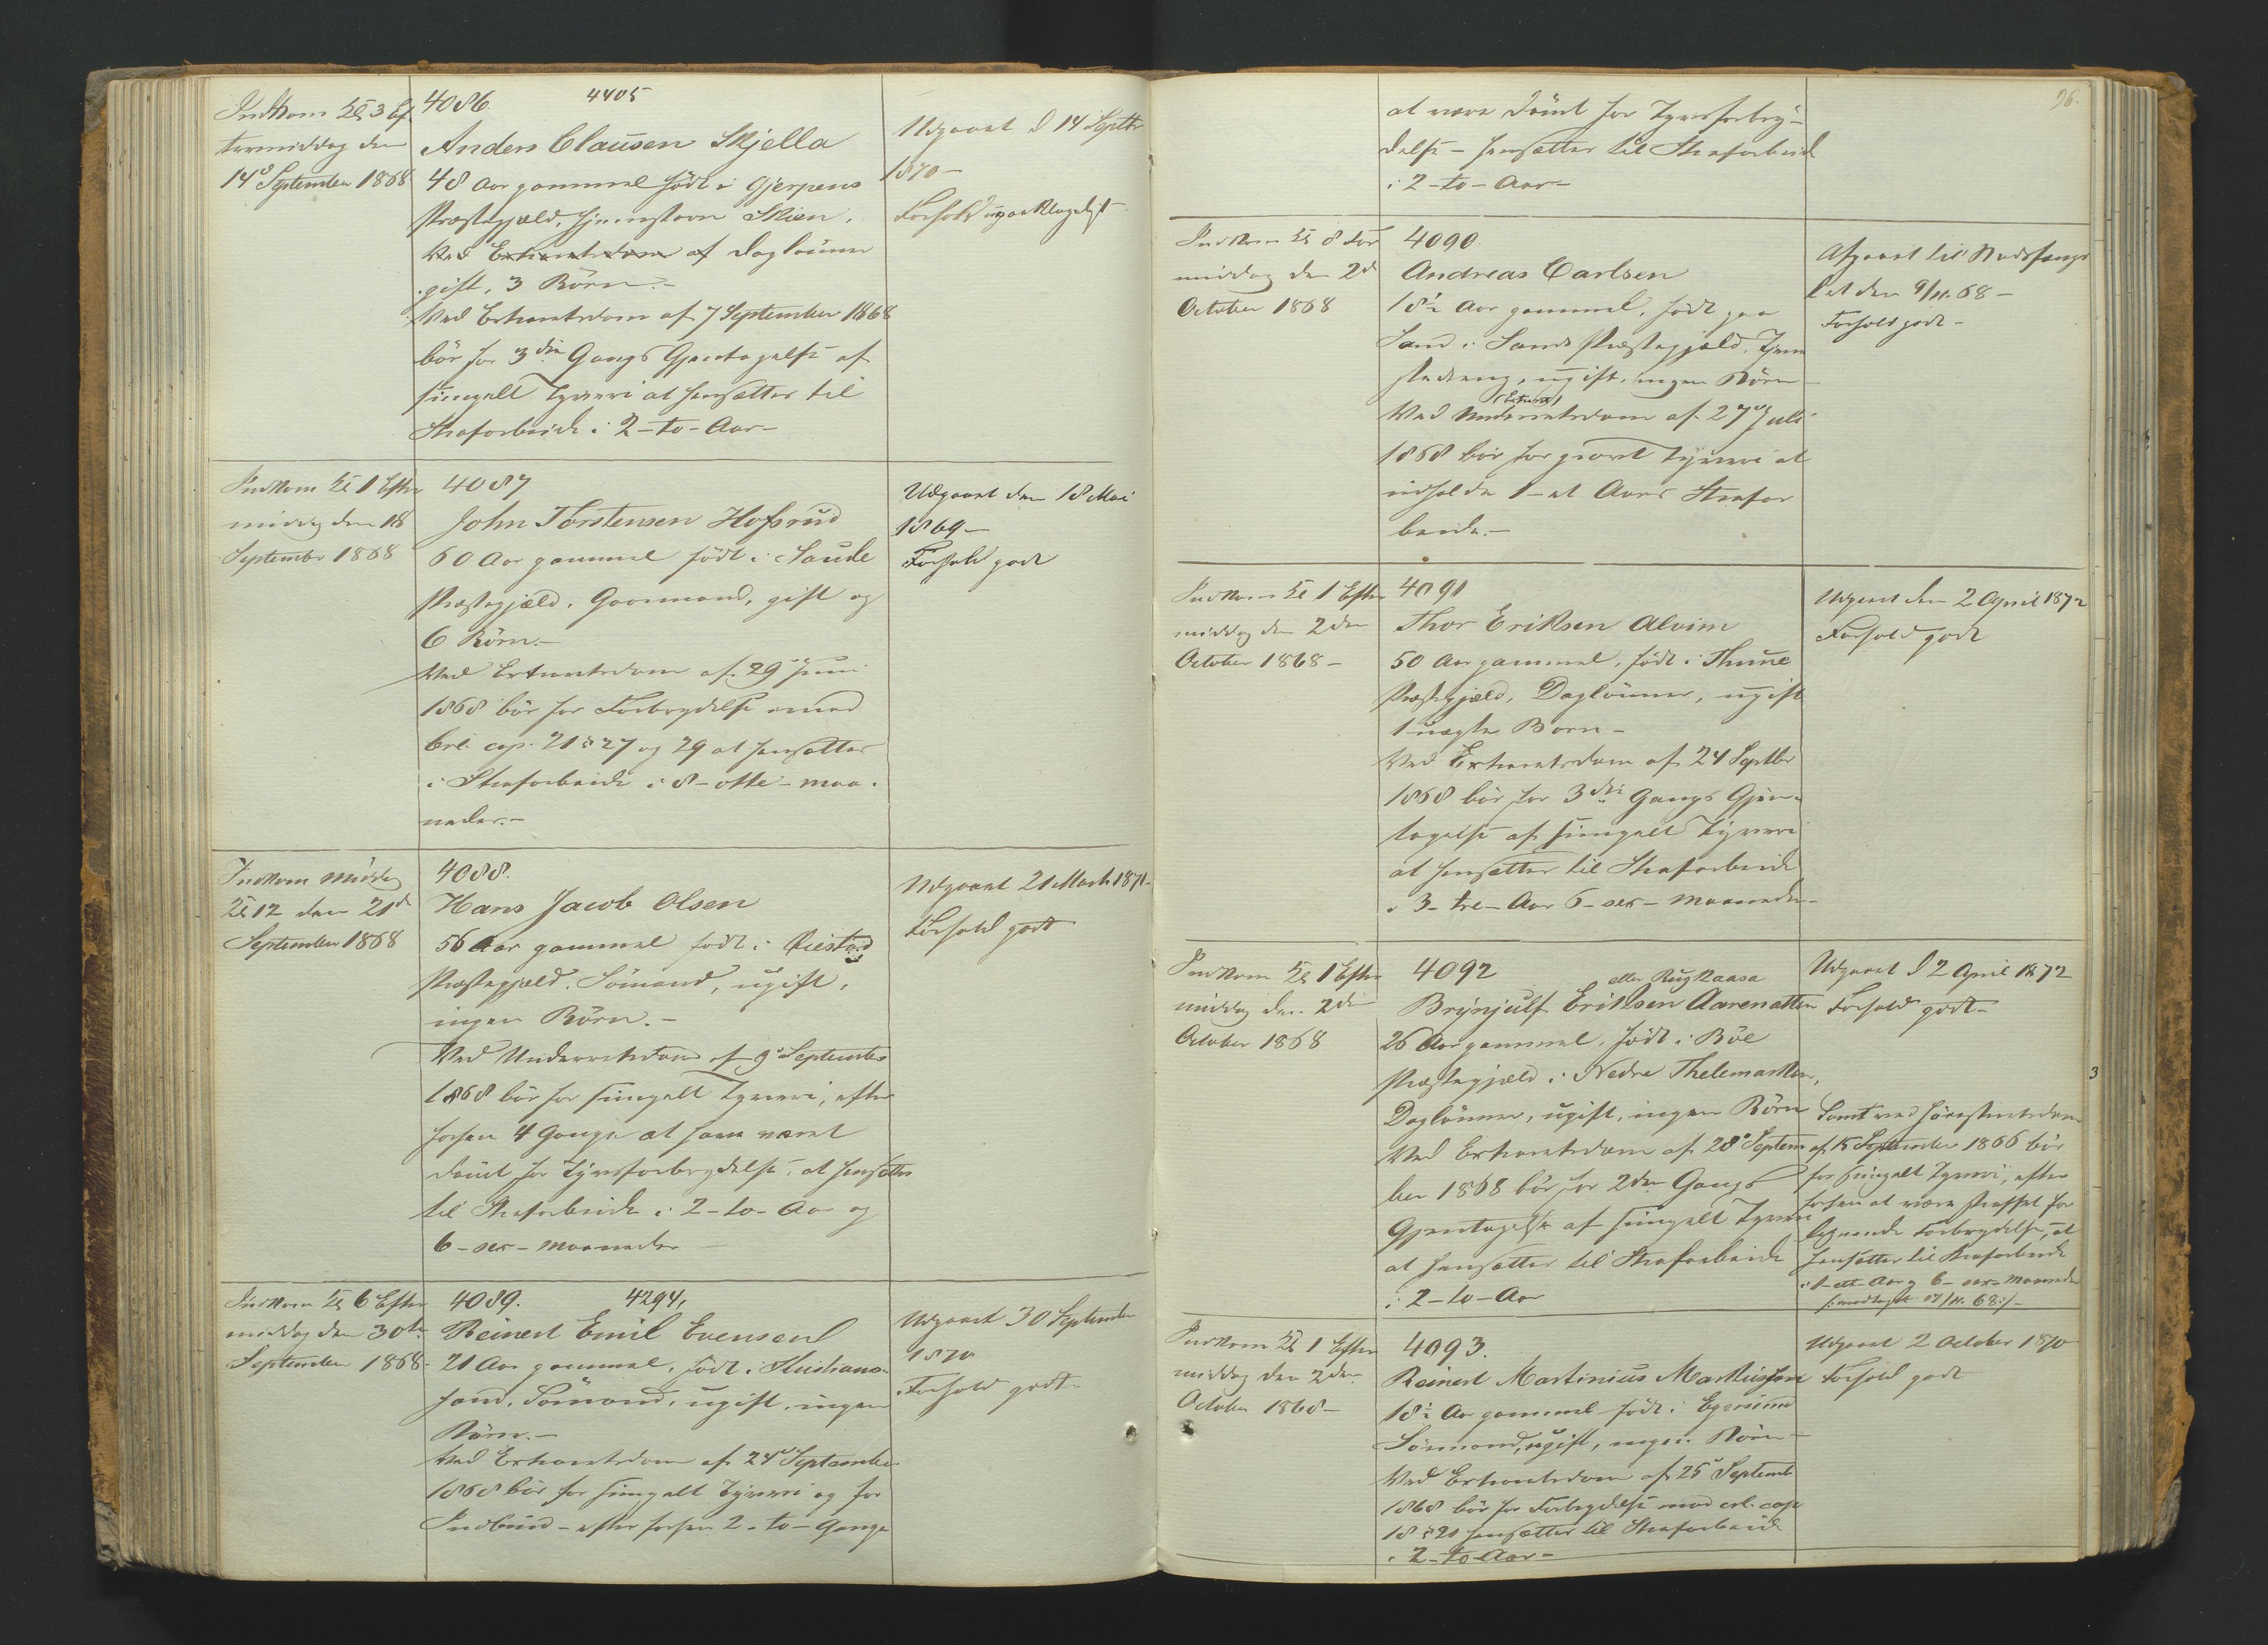 Indkom Kl 3 Ef
termiddag den
14d September 1868
4086. 4405
Anders Clausen Skjella
48 Aar gammel født i Gjerpens
Præstegjæld, hjemstavn Skien,
Ved Extraretsdom af Dagleiønner
gift, 3 Børn.-
Ved Extraretsdom af 7 September 1868
bör for 3die Gangs Gjentagelse af
simpelt Tyveri at hensættes til
Strafarbeide i 2-to-Aar-
Udgaaet d 14 Septbr
1870-
Forhold upaaklageligt
Indkom Kl 1 Efter
middag den 18
September 1868
4087
John Torstensen Hofsrud
60 Aar gammel født i Saude
Præstegjæld, Gaardmand, gift og
6 Børn.-
Ved Extraretsdom af 29 Juni
1868 bör for Forbrydelse imod
Crl. cap. 21 § 27 og 29 at hensættes
i Strafarbeide i 8-otte-maa-
neder.-
Udgaaet den 18 Mai
1869-
Forhold godt
Indkom Middag
Kl 12 den 21d
September 1868
4088.
Hans Jacob Olsen
56 Aar gammel født i
Præstegjæld. Sömand, ugift,
ingen Børn.-
Ved Underretsdom af 9 September
1868 bör for simpelt Tyveri, efter
forhen 4 Gange at have været
dömt for Tyvsforbrydelse, at hensættes
til Strafarbeide i 2-to-Aar og
6-sex-Maaneder
Udgaaet 21 Marts 1871.
Forhold godt
Indkom Kl 6 Efter
middag den 30te
September 1868-
4089. 4294,
Reinert Emil Evensen
21 Aar gammel, født i Kristians-
sand, Sömand, ugift, ingen
Børn.-
Ved Extraretsdom af 24 September
1868 bör for simpelt Tyveri og for
Indbrud - efter forhen 2-to-Gange
Udgaaet 30 September
1870
Forhold godt-
96.
at være dömt for Tyvsforbry-
delse - hensættes til Strafarbeide
i 2-to-Aar-
Indkom Kl 8 For
middag den 2d
October 1868
4090.
Andreas Carlsen
18½ Aar gammel, født paa
Sand i Sands Præstegjæld, Tjene
stedreng, ugift, ingen Børn
(Extraret)
Ved Underretsdom af 27 Juli
1868 bör for grovt Tyveri at
udholde 1-et Aars Strafar
beide.-
Afgaaet til Bodsfængs
let den 9/11. 68-
Forhold godt-
Indkom Kl 1 Efter
middag den 2den
October 1868-
4091
Thor Eriksen Alvim
50 Aar gammel, født i Thune
Præstegjæld, Daglönner, ugift
1 uægte Barn-
Ved Extraretsdom af 24 Septbr
1868 bör for 3die Gangs Gjen-
tagelse af simpelt Tyveri
at hensættes til Strafarbeide
i 3-tre-Aar 6-sex-Maaneder-
Udgaaet den 2 April 1872
Forhold godt
Indkom Kl 1 Efter
middag den 2den
October 1868
4092
eller Rugkaasa
Brynjulf Eriksen Aarenatten
26 Aar gammel, født i Böe
Præstegjæld i Nedre Thelemarken,
Daglönner, ugift, ingen Børn
Ved Extraretsdom af 28 Septem
ber 1868 bör for 2den Gangs
Gjentagelse af simpelt Tyveri
at hensættes til Strafarbeide
i 2-to-Aar
Udgaaet d 2 April 1872
Forhold godt-
Samt ved Höiesteretsdom
af 15 September 1866 bör
for simpelt Tyveri, efter
forhen at være straffet for
lignende Forbrydelse, at
hensættes til Strafarbeide
i 1-ett-Aar og 6-sex-Maaneder
3
Indkom Kl 1 Efter
middag den 2den
October 1868-
4093.
Reinert Martinius Markussen
18½ Aar gammel født i Egersund
Sömand, ugift, ingen Børn-
Ved Extraretsdom af 25 Septemb
1868 bör for Forbrydelse mod crl. cap
18 § 21 hensættes til Strafarbeide
i 2-to-Aar-
Udgaaet 2 October 1870
Forhold godt